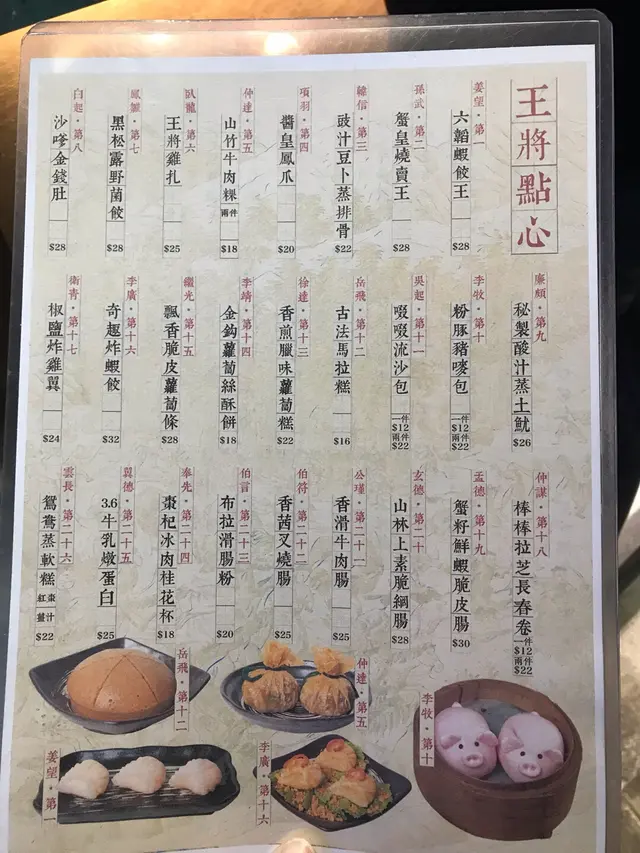 王將點心
姜望·第一
六韜蝦餃王
$28
孫武·第二
蟹皇燒賣王
$28
韓信·第三
豉汁豆卜蒸排骨
$22
項羽·第四
醬皇鳳爪
$20
仲達·第五
山竹牛肉粿
兩件
$18
臥龍·第六
王將雞扎
$25
鳳雛·第七
黑松露野菌餃
$28
白起·第八
沙嗲金錢肚
$28
廉頗·第九
秘製酸汁蒸土魷
$26
李牧·第十
粉豚豬嘜包
一件
$12
兩件
$22
吳起·第十一
啜啜流沙包
一件
$12
兩件
$22
岳飛·第十二
古法馬拉糕
$16
徐達·第十三
香煎臘味蘿蔔糕
$22
李靖·第十四
金鈎蘿蔔絲酥餅
$18
繼光·第十五
飄香脆皮蘿蔔條
$28
李廣·第十六
奇趣炸蝦餃
$32
衛青·第十七
椒鹽炸雞翼
$24
仲謀·第十八
棒棒拉芝長春卷
一件
$12
兩件
$22
孟德·第十九
蟹籽鮮蝦脆皮腸
$30
玄德·第二十
山林上素脆綱腸
$28
公瑾·第二十一
香滑牛肉腸
$25
伯符·第二十二
香茜叉燒腸
$25
伯言·第二十三
布拉滑腸粉
$20
奉先·第二十四
棗杞冰肉桂花杯
$18
翼德·第二十五
3.6牛乳燉蛋白
$25
雲長·第二十六
鴛鴦蒸軟糕
紅棗
薑汁
$22
岳飛·第十二
仲達·第五
李牧·第十
姜望·第一
李廣·第十六